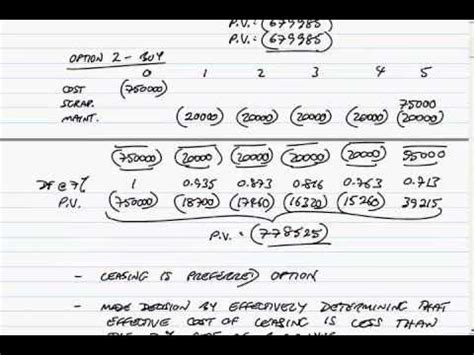 P.V. : (679985)
P.V. : (679985)
OPTION 2 - BUY
0 1 2 3 4 5
COST (750000)
SCRAP. 75000
MAINT. (20000) (20000) (20000) (20000) (20000)
(750000) (20000) (20000) (20000) (20000) 55000
DF @ 7% 1 0.935 0.873 0.816 0.763 0.713
P.V. (750000) (18700) (17460) (16320) (15260) 39215
P.V. = (778525)
- LEASING IS PREFERRED OPTION
- MADE DECISION BY EFFECTIVELY DETERMINING THAT
EFFECTIVE COST OF LEASING IS LESS THAN